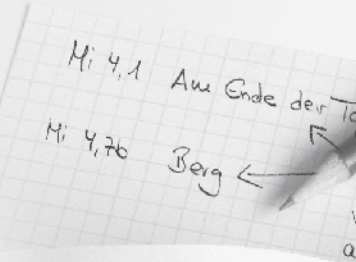 Mi 4,1 Am Ende der
Mi 4,7b Berg